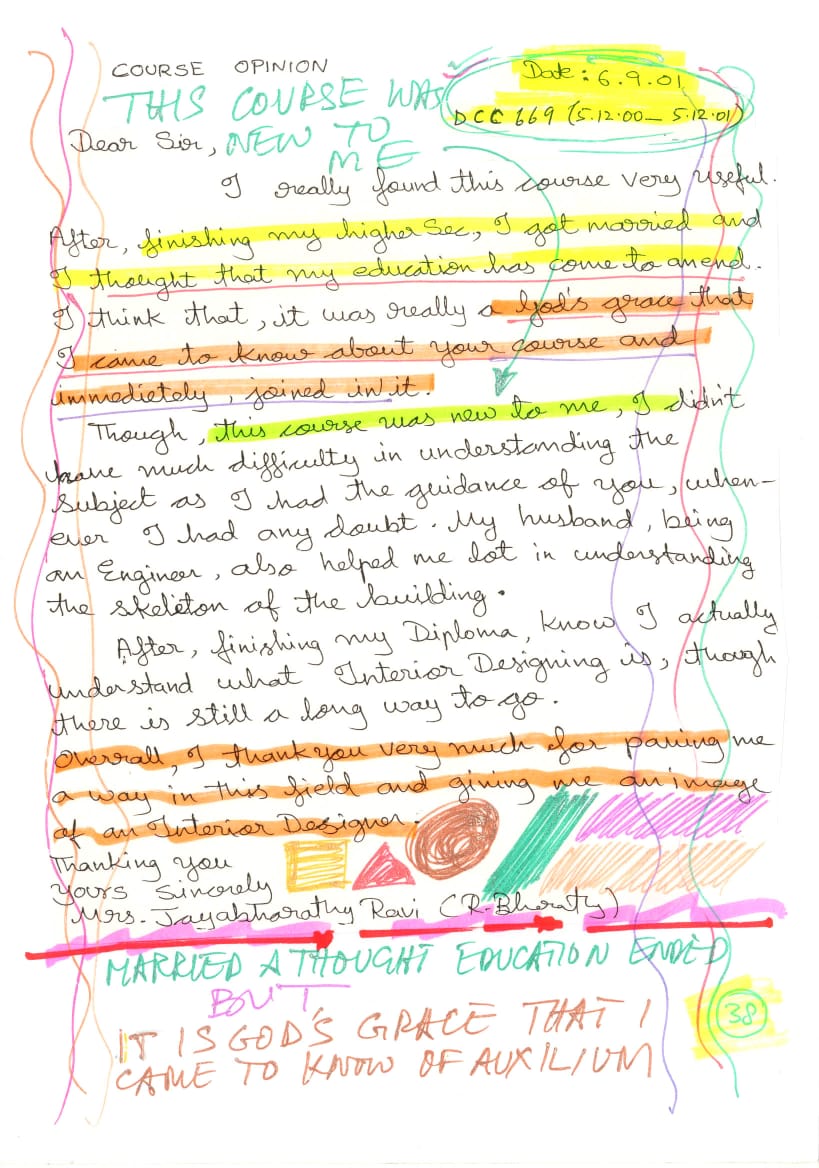 COURSE OPINION
Date: 6.9.01
THIS COURSE WAS
DCC 669 (5.12.00_ 5.12.01)
Dear Sir, NEW TO
ME
I really found this course very useful.
After, finishing my higher Sec, I got married and
I thought that my education has come to an end.
I think that, it was really a God's grace that
I came to know about your course and
immedietely, joined in it.
Though, this course was new to me, I didn't
have much difficulty in understanding the
subject as I had the guidance of you, when-
ever I had any doubt. My husband, being
an Engineer, also helped me lot in understanding
the skeleton of the building.
After, finishing my Diploma, know I actually
understand what Interior Designing is, though
there is still a long way to go.
Overrall, I thank you very much for paving me
a way in this field and giving me an image
of an Interior Designer.
Thanking you
Yours Sincerely
Mrs. Jayabharathy Ravi (R. Bharathy)
MARRIED A THOUGHT EDUCATION ENDED
BUT
IT IS GOD'S GRACE THAT I
CAME TO KNOW OF AUXILIUM
38